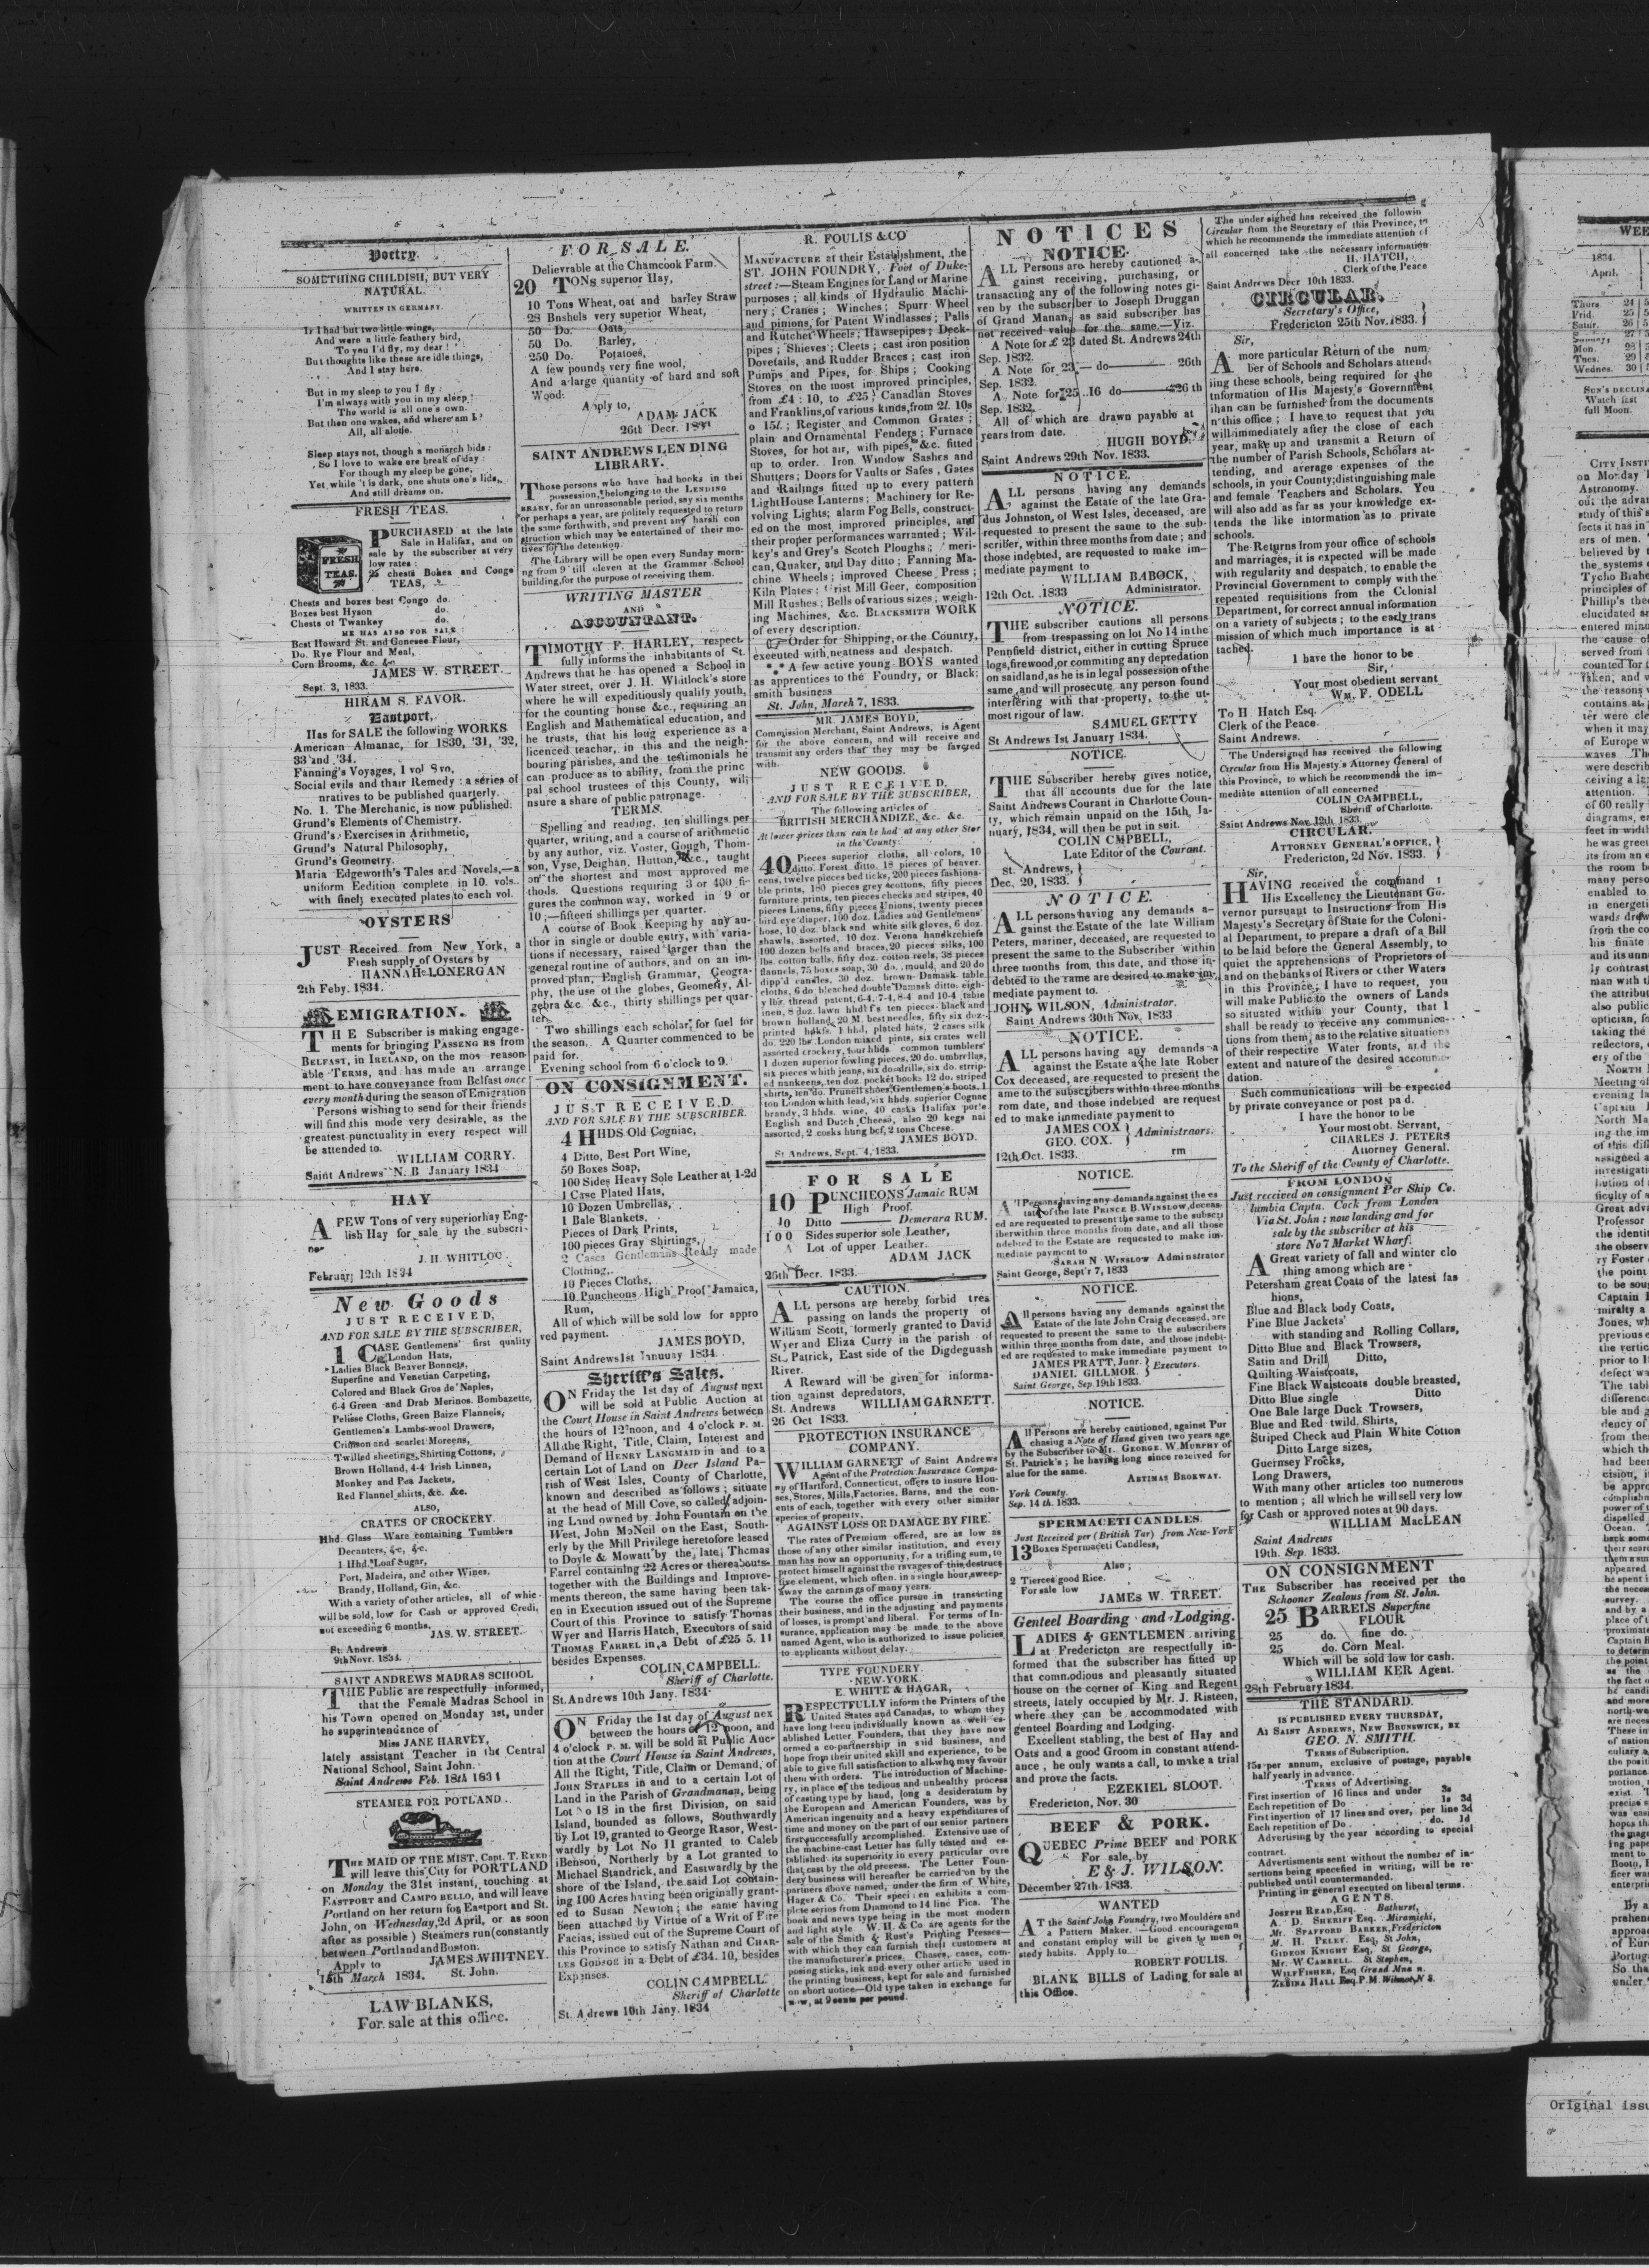 Poetry.
SOMETHING CHILDISH, BUT VERY
NATURAL.
WRITTEN IN GERMANY.
If I had but two little wings,
And were a little feathery bird,
To you I'd fly, my dear!
But thoughts like these are idle things,
And I stay here.
But in my sleep to you I fly:
I'm always with you in my sleep!
The world is all one's own.
But then one wakes, and where am I?
All, all alone.
Sleep stays not, though a monarch bids:
So I love to wake ere break of day:
For though my sleep be gone,
Yet while 't is dark, one shuts one's lids,
And still dreams on.
FRESH TEAS.
PURCHASED at the late
Sale in Halifax, and on
sale by the subscriber at very
low rates:
25 chests Bohea and Congo
TEAS,
FRESH
TEAS.
Chests and boxes best Congo do.
Boxes best Hyson do.
Chests of Twankey do.
HE HAS ALSO FOR SALE:
Best Howard St. and Genesee Flour,
Do. Rye Flour and Meal,
Corn Brooms, &c. &c
JAMES W. STREET.
Sept. 3, 1833.
HIRAM S. FAVOR.
Eastport,
Has for SALE the following WORKS
American Almanac, for 1830, '31, '32,
33 and '34.
Fanning's Voyages, 1 vol 8vo,
Social evils and thair Remedy: a series of
nratives to be published quarterly.
No. 1. The Merchanic, is now published.
Grund's Elements of Chemistry.
Grund's Exercises in Arithmetic,
Grund's Natural Philosophy,
Grund's Geometry.
Maria Edgeworth's Tales and Novels,—a
uniform Eedition complete in 10. vols.
with finely executed plates to each vol.
OYSTERS
JUST Received from New York, a
Fresh supply of Oysters by
HANNAH LONERGAN
2th Feby. 1834.
EMIGRATION.
THE Subscriber is making engage-
ments for bringing PASSENG RS from
BELFAST, in IRELAND, on the mos reason
able TERMS, and has made an arrange
ment to have conveyance from Belfast once
every month during the season of Emigration
Persons wishing to send for their friends
will find this mode very desirable, as the
greatest punctuality in every respect will
be attended to.
WILLIAM CORRY.
Saint Andrews N. B January 1834
HAY
A FEW Tons of very superior hay Eng-
lish Hay for sale by the subscri-
ner
J. H. WHITLOC
February 12th 1834
New Goods
JUST RECEIVED,
AND FOR SALE BY THE SUBSCRIBER,
1 CASE Gentlemens' first quality
London Hats,
Ladies Black Beaver Bonnets,
Superfine and Venetian Carpeting,
Colored and Black Gros de Naples,
6-4 Green and Drab Merinos. Bombazette,
Pelisse Cloths, Green Baize Flannels,
Gentlemen's Lambs-wool Drawers,
Crimson and scarlet Moreens,
Twilled sheetings, Shirting Cottons,
Brown Holland, 4-4 Irish Linnen,
Monkey and Pea Jackets,
Red Flannel shirts, &c. &c.
ALSO,
CRATES OF CROCKERY.
Hhd. Glass Ware containing Tumblers
Decanters, &c, &c.
1 Hhd. Loaf Sugar,
Port, Madeira, and other Wines,
Brandy, Holland, Gin, &c.
With a variety of other articles, all of whic
will be sold, low for Cash or approved Credi,
not exceeding 6 months,
JAS. W. STREET.
St. Andrews
9th Novr. 1834.
SAINT ANDREWS MADRAS SCHOOL
THE Public are respectfully informed,
that the Female Madras School in
his Town opened on Monday 3st, under
he superintendance of
Miss JANE HARVEY,
lately assistant Teacher in the Central
National School, Saint John.
Saint Andrews Feb. 18th 1834
STEAMER FOR POTLAND.
THE MAID OF THE MIST, Capt. T. REED
will leave this City for PORTLAND
on Monday the 31st instant, touching at
EASTPORT and CAMPO BELLO, and will leave
Portland on her return for Eastport and St.
John, on Wednesday, 2d April, or as soon
after as possible) Steamers run (constantly
between Portland and Boston.
Apply to JAMES WHITNEY.
15th March 1834. St. John.
LAW BLANKS,
For sale at this office.
FOR SALE.
Delievrable at the Chamcook Farm.
20 TONS superior Hay,
10 Tons Wheat, oat and barley Straw
28 Bushels very superior Wheat,
50 Do. Oats,
50 Do. Barley,
250 Do. Potatoes,
A few pounds very fine wool,
And a large quantity of hard and soft
Wood:
Apply to,
ADAM JACK
26th Decr.
SAINT ANDREWS LENDING
LIBRARY.
Those persons who have had books in thei
possession, belonging to the LENDING
BRARY, for an unreasonable period, say six months
or perhaps a year, are politely requested to return
the same forthwith, and prevent any harsh con
struction which may be entertained of their mo-
tives for the detention.
The Library will be open every Sunday morn-
ng from 9 till eleven at the Grammar School
building, for the purpose of receiving them.
WRITING MASTER
AND
ACCOUNTANT.
TIMOTHY F. HARLEY, respect
fully informs the inhabitants of St.
Andrews that he has opened a School in
Water street, over J. H. Whitlock's store
where he will expeditiously qualify youth,
for the counting house &c., requiring an
English and Mathematical education, and
he trusts, that his long experience as a
licenced teachar, in this and the neigh-
bouring parishes, and the testimonials he
can produce as to ability, from the princ
pal school trustees of this County, wil;
nsure a share of public patronage.
TERMS.
Spelling and reading, ten shillings per
quarter, writing, and a course of arithmetic
by any author, viz. Voster, Gough, Thom-
son, Vyse, Deighan, Hutton, &c., taught
on the shortest and most approved me
thods. Questions requiring 3 or 400 fi-
gures the common way, worked in 9 or
10;—fifteen shillings per quarter.
A course of Book Keeping by any au-
thor in single or double entry, with varia-
tions if necessary, raised larger than the
general routine of authors, and on an im-
proved plan, English Grammar, Geogra-
phy, the use of the globes, Geometry, Al-
gebra &c &c., thirty shillings per quar-
ter.
Two shillings each scholar, for fuel for
the season. A Quarter commenced to be
paid for.
Evening school from 6 o'clock to 9.
ON CONSIGNMENT.
JUST RECEIVED.
AND FOR SALE BY THE SUBSCRIBER.
4 HHDS Old Cogniac,
4 Ditto, Best Port Wine,
50 Boxes Soap,
100 Sides Heavy Sole Leather at 1-2d
1 Case Plated Hats,
10 Dozen Umbrellas,
1 Bale Blankets,
Pieces of Dark Prints,
100 pieces Gray Shirtings,
2 Cases Gentlemans Ready made
Clothing,
10 Pieces Cloths,
10 Puncheons High Proof Jamaica,
Rum,
All of which will be sold low for appro
ved payment.
JAMES BOYD,
Saint Andrews 1st Januuay 1834.
Sheriff's Sales.
ON Friday the 1st day of August next
will be sold at Public Auction at
the Court House in Saint Andrews between
the hours of 12 noon, and 4 o'clock P. M.
All the Right, Title, Claim, Interest and
Demand of HENRY LANGMAID in and to a
certain Lot of Land on Deer Island Pa-
rish of West Isles, County of Charlotte,
known and described as follows; situate
at the head of Mill Cove, so called, adjoin-
ing Land owned by John Fountain on the
West, John McNeil on the East, South-
erly by the Mill Privilege heretofore leased
to Doyle & Mowatt by the late; Thomas
Farrel containing 22 Acres or thereabouts-
together with the Buildings and Improve-
ments thereon, the same having been tak-
en in Execution issued out of the Supreme
Court of this Province to satisfy Thomas
Wyer and Harris Hatch, Executors of said
THOMAS FARREL in a Debt of £25 5. 11
besides Expenses.
COLIN CAMPBELL.
Sheriff of Charlotte.
St. Andrews 10th Jany. 1834
ON Friday the 1st day of August nex
between the hours of 12 noon, and
4 o'clock P. M. will be sold at Public Auc-
tion at the Court House in Saint Andrews,
All the Right, Title, Claim or Demand, of
JOHN STAPLES in and to a certain Lot of
Land in the Parish of Grandmanan, being
Lot No 18 in the first Division, on said
Island, bounded as follows, Southwardly
by Lot 19, granted to George Rasor, West-
wardly by Lot No 11 granted to Caleb
Benson, Northerly by a Lot granted to
Michael Standrick, and Eastwardly by the
shore of the Island, the said Lot contain-
ing 100 Acres having been originally grant-
ed to Susan Newton; the same having
been attached by Virtue of a Writ of Fire
Facias, issued out of the Supreme Court of
this Province to satisfy Nathan and CHAR-
LES GODSOE in a Debt of £34. 10, besides
Expenses.
COLIN CAMPBELL.
Sheriff of Charlotte
St. A drews 10th Jany. 1834
R. FOULIS & CO
MANUFACTURE at their Establishment, the
ST. JOHN FOUNDRY, Foot of Duke-
street:—Steam Engines for Land or Marine
purposes; all kinds of Hydraulic Machi-
nery; Cranes; Winches; Spurr Wheel
and pinions, for Patent Windlasses; Palls
and Rutchet Wheels; Hawsepipes; Deck-
pipes; Shieves; Cleets; cast iron position
Dovetails, and Rudder Braces; cast iron
Pumps and Pipes, for Ships; Cooking
Stoves on the most improved principles,
from £4: 10, to £25; Canadian Stoves
and Franklins, of various kinds, from 2l. 10s
o 15l.; Register and Common Grates;
plain and Ornamental Fenders; Furnace
Stoves, for hot air, with pipes, &c. fitted
up to order. Iron Window Sashes and
Shutters; Doors for Vaults or Safes, Gates
and Railings fitted up to every pattern
Light House Lanterns; Machinery for Re-
volving Lights; alarm Fog Bells, construct-
ed on the most improved principles, and
their proper performances warranted; Wil-
key's and Grey's Scotch Ploughs; meri-
can, Quaker, and Day ditto; Fanning Ma-
chine Wheels; improved Cheese Press;
Kiln Plates; Grist Mill Geer, composition
Mill Rushes; Bells of various sizes; weigh-
ing Machines, &c. BLACKSMITH WORK
of every description.
Order for Shipping, or the Country,
executed with neatness and despatch.
*** A few active young BOYS wanted
as apprentices to the Foundry, or Black;
smith business
St. John, March 7, 1833.
MR. JAMES BOYD,
Commission Merchant, Saint Andrews, is Agent
for the above concern, and will receive and
transmit any orders that they may be favored
with.
NEW GOODS.
JUST RECEIVED,
AND FOR SALE BY THE SUBSCRIBER,
The following articles of
BRITISH MERCHANDIZE, &c. &c.
At lower prices than can be had at any other Stor
in the County:
40 Pieces superior cloths, all colors, 10
ditto. Forest ditto. 18 pieces of beaver.
eens, twelve pieces bed ticks, 200 pieces fashiona-
ble prints, 180 pieces grey cottons, fifty pieces
furniture prints, ten pieces checks and stripes, 40
pieces Linens, fifty pieces Unions, twenty pieces
bird eye diaper, 100 doz. Ladies and Gentlemens'
hose, 10 doz. black and white silk gloves, 6 doz.
shawls, assorted, 10 doz. Verona handkerchiefs
100 dozen belts and braces, 20 pieces silks, 100
lbs. cotton balls, fifty doz. cotton reels, 38 pieces
flannels, 75 boxes soap, 30 do. mould, and 20 do
dipp'd candles, 30 doz. brown Damask table
cloths, 6 do. bleached double Damask ditto. eigh-
y lbs. thread patent, 6-4, 7-4, 8-4 and 10-4 table
inen, 8 doz. lawn hhdf's ten pieces black and
brown holland, 20 M. best needles, fifty six doz.
printed hdkfs. 1 hhd. plated hats, 2 cases silk
do. 220 lbs. London mixed pints, six crates well
assorted crockery, four hhds. common tumblers'
1 dozen superior fowling pieces, 20 do. umbrellas,
six pieces whith jeans, six do. drills, six do. strrip-
ed nankeens, ten doz. pocket books 12 do. striped
shirts, ten do. Prunell shoes, Gentlemen's boots. 1
ton London whith lead, six hhds. superior Cognac
brandy, 3 hhds. wine, 40 casks Halifax por'e
English and Dutch Cheese, also 20 kegs nai
assorted, 2 cosks hung bef, 2 tons Cheese.
JAMES BOYD.
St Andrews, Sept. 4, 1833.
FOR SALE
10 PUNCHEONS Jamaic RUM
High Proof.
10 Ditto —— Demerara RUM.
100 Sides superior sole Leather,
A Lot of upper Leather.
ADAM JACK
25th Decr. 1833.
CAUTION.
ALL persons are hereby forbid tres
passing on lands the property of
William Scott, formerly granted to David
Wyer and Eliza Curry in the parish of
St. Patrick, East side of the Digdeguash
River.
A Reward will be given for informa-
tion against depredators,
St. Andrews WILLIAM GARNETT.
26 Oct 1833.
PROTECTION INSURANCE
COMPANY.
WILLIAM GARNETT of Saint Andrews
Agent of the Protection Insurance Compa-
ny of Hartford, Connecticut, offers to insure Hou-
ses, Stores, Mills, Factories, Barns, and the con-
ents of each, together with every other similar
species of property.
AGAINST LOSS OR DAMAGE BY FIRE.
The rates of Premium offered, are as low as
those of any other similar institution, and every
man has now an opportunity, for a trifling sum, to
protect himself against the ravages of this destruct
tive element, which often in a single hour, sweep-
away the earnings of many years.
The course the office pursue in transacting
their business, and in the adjusting and payments
of losses, is prompt and liberal. For terms of In-
surance, application may be made to the above
named Agent, who is authorized to issue policies
to applicants without delay.
TYPE FOUNDERY.
NEW-YORK.
E. WHITE & HAGAR,
RESPECTFULLY inform the Printers of the
United States and Canadas, to whom they
have long been individually known as well es-
ablished Letter Founders, that they have now
ormed a co-partnership in said business, and
hope from their united skill and experience, to be
able to give full satisfaction to all who may favour
them with orders. The introduction of Machine-
ry, in place of the tedious and unhealthy process
of casting type by hand, long a desideratum by
the European and American Founders, was by
American ingenuity and a heavy expenditures of
time and money on the part of our senior partners
first successfully accomplished. Extensive use of
the machine-cast Letter has fully tested and es-
tablished its superiority in every particular ovre
that cast by the old preeess. The Letter Foun-
dery business will hereafter be carried on by the
partners above named, under the firm of White,
Hager & Co. Their speci en exhibits a com-
plete series from Diamond to 14 line Pica. The
book and news type being in the most modern
and light style. W. H. & Co are agents for the
sale of the Smith & Rust's Printing Presses—
with which they can furnish their customers at
the manufacturer's prices. Chases, cases, com-
posing sticks, ink and every other article used in
the printing business, kept for sale and furnished
on short uotice.—Old type taken in exchange for
new, at 9 cents per pound.
NOTICES
NOTICE.
ALL Persons are hereby cautioned a-
gainst receiving, purchasing, or
transacting any of the following notes gi-
ven by the subscriber to Joseph Druggan
of Grand Manan, as said subscriber has
not received value for the same.—Viz.
A Note for £ 23 dated St. Andrews 24th
Sep. 1832.
A Note for 23 — do —— 26th
Sep. 1832.
A Note for 25 ..16 do —— 26 th
Sep. 1832.
All of which are drawn payable at
years from date.
HUGH BOYD.
Saint Andrews 29th Nov. 1833.
NOTICE.
ALL persons having any demands
against the Estate of the late Gra-
dus Johnston, of West Isles, deceased, are
requested to present the same to the sub-
scriber, within three months from date; and
those indebted, are requested to make im-
mediate payment to
WILLIAM BABOCK,
12th Oct. 1833 Administrator.
NOTICE.
THE subscriber cautions all persons
from trespassing on lot No 14 in the
Pennfield district, either in cutting Spruce
logs, firewood, or commiting any depredation
on said land, as he is in legal possession of the
same and will prosecute any person found
interfering with that property, to the ut-
most rigour of law.
SAMUEL GETTY
St Andrews 1st January 1834.
NOTICE.
THE Subscriber hereby gives notice,
that all accounts due for the late
Saint Andrews Courant in Charlotte Coun-
ty, which remain unpaid on the 15th, Ja-
nuary, 1834, will then be put in suit.
COLIN CMPBELL,
Late Editor of the Courant.
St. Andrews, }
Dec. 20, 1833. }
NOTICE.
ALL persons having any demands a-
gainst the Estate of the late William
Peters, mariner, deceased, are requested to
present the same to the Subscriber within
three months from, this date, and those in-
debted to the same are desired to make im-
mediate payment to.
JOHN WILSON, Administrator.
Saint Andrews 30th Nov. 1833
NOTICE.
ALL persons having any demands a
against the Estate a the late Rober
Cox deceased, are requested to present the
ame to the subscribers within three months
rom date, and those indebted are request
ed to make immediate payment to
JAMES COX }
GEO. COX. } Administraors.
12th Oct. 1833. rm
NOTICE.
A'l Persons having any demands against the es
tate of the late PRINCE B. WINSLOW, deceas-
ed are requested to present the same to the subscri
iber within three months from date, and all those
ndebted to the Estate are requested to make im-
mediate payment to
SARAH N WINSLOW Administrator
Saint George, Sept'r 7, 1833
NOTICE.
All persons having any demands against the
Estate of the late John Craig deceased, are
requested to present the same to the subscribers
within three months from date, and those indebt-
ed are requested to make immediate payment to
JAMES PRATT, Junr. }
DANIEL GILLMOR. } Executors.
Saint George, Sep. 19th 1833.
NOTICE.
All Persons are hereby cautioned, against Pur
chasing a Note of Hand given two years age
by the Subscriber to Mr. GEORGE. W. MURPHY of
St. Patrick's; he having long since received for
alue for the same.
ARTIMAS BROKWAY.
York County.
Sep. 14 th. 1833.
SPERMACETI CANDLES.
Just Received per (British Tar) from New-York
13 Boxes Spermaceti Candless,
Also;
2 Tierces good Rice.
For sale low
JAMES W. TREET.
Genteel Boarding and Lodging.
LADIES & GENTLEMEN arriving
at Fredericton are respectfully in-
formed that the subscriber has fitted up
that commodious and pleasantly situated
house on the corner of King and Regent
streets, lately occupied by Mr. J. Risteen,
where they can be accommodated with
genteel Boarding and Lodging.
Excellent stabling, the best of Hay and
Oats and a good Groom in constant attend-
ance, he only wants a call, to make a trial
and prove the facts.
EZEKIEL SLOOT.
Fredericton, Nov. 30
BEEF & PORK.
QUEBEC Prime BEEF and PORK
For sale, by
E & J. WILSON.
December 27th 1833.
WANTED
AT the Saint John Foundry, two Moulders and
a Pattern Maker.—Good encouragemn
and constant employ will be given to men of
stedy habits. Apply to
ROBERT FOULIS.
BLANK BILLS of Lading for sale at
this Office.
The under sighed has received the followin
Circular from the Secretary of this Province, to
which he recommends the immediate attention of
all concerned take the necessary information
H. HATCH,
Clerk of the Peace
Saint Andrews Decr 10th 1833.
CIRCULAR.
Secretary's Office,
Fredericton 25th Nov. 1833. }
Sir,
A more particular Return of the num
ber of Schools and Scholars attend-
iing these schools, being required for the
tnformation of His Majesty's Government
ihan can be furnished from the documents
n this office; I have to request that you
will immediately after the close of each
year, make up and transmit a Return of
the number of Parish Schools, Scholars at-
tending, and average expenses of the
schools, in your County; distinguishing male
and female Teachers and Scholars. You
will also add as far as your knowledge ex-
tends the like information as to private
schools.
The Returns from your office of schools
and marriages, it is expected will be made
with regularity and despatch, to enable the
Provincial Government to comply with the
repeated requisitions from the Colonial
Department, for correct annual information
on a variety of subjects; to the early trans
mission of which much importance is at
tached.
I have the honor to be
Sir,
Your most obedient servant
WM. F. ODELL
To H. Hatch Esq.
Clerk of the Peace.
Saint Andrews.
The Undersigned has received the following
Circular from His Majesty's Attorney General of
this Province, to which he recommends the im-
mediate attention of all concerned
COLIN CAMPBELL,
Sheriff of Charlotte.
Saint Andrews Nov. 12th 1833.
CIRCULAR.
ATTORNEY GENERAL'S OFFICE, }
Fredericton, 2d Nov. 1833. }
Sir,
HAVING received the command
His Excellency the Lieutenant Go.
vernor pursuant to Instructions from His
Majesty's Secretary of State for the Coloni-
al Department, to prepare a draft of a Bill
to be laid before the General Assembly, to
quiet the apprehensions of Proprietors of
and on the banks of Rivers or other Waters
in this Province; I have to request, you
will make Public to the owners of Lands
so situated within your County, that I
shall be ready to receive any communica-
tions from them, as to the relative situations
of their respective Water fronts, and the
extent and nature of the desired accommo-
dation.
Such communications will be expected
by private conveyance or post pa d.
I have the honor to be
Your most obt. Servant,
CHARLES J. PETERS
Attorney General.
To the Sheriff of the County of Charlotte.
FROM LONDON
Just received on consignment Per Ship Co.
lumbia Captn. Cock from London
Via St. John: now landing and for
sale by the subscriber at his
store No 7 Market Wharf.
A Great variety of fall and winter clo
thing among which are
Petersham great Coats of the latest fas
hions,
Blue and Black body Coats,
Fine Blue Jackets'
with standing and Rolling Collars,
Ditto Blue and Black Trowsers,
Satin and Drill Ditto,
Quilting Waistcoats,
Fine Black Waistcoats double breasted,
Ditto Blue single Ditto
One Bale large Duck Trowsers,
Blue and Red twild. Shirts,
Striped Check aud Plain White Cotton
Ditto Large sizes,
Guernsey Frocks,
Long Drawers,
With many other articles too numerous
to mention; all which he will sell very low
for Cash or approved notes at 90 days.
WILLIAM MacLEAN
Saint Andrews
19th. Sep. 1833.
ON CONSIGNMENT
THE Subscriber has received per the
Schooner Zealous from St. John.
25 BARRELS Superfine
FLOUR
25 do. fine do.
25 do. Corn Meal.
Which will be sold low for cash.
WILLIAM KER Agent.
28th February 1834.
THE STANDARD.
IS PUBLISHED EVERY THURSDAY,
At SAINT ANDREWS, NEW BRUNSWICK, BY
GEO. N. SMITH.
TERMS of Subscription.
15s per annum, exclusive of postage, payable
half yearly in advance.
TERMS of Advertising.
First insertion of 16 lines and under 3s
Each repetition of Do 1s 3d
First insertion of 17 lines and over, per line 3d
Each repetition of Do. do. 1d
Advertising by the year according to special
contract.
Advertisments sent without the number of in-
sertions being specefied in writing, will be re-
published until countermanded.
Printing in general executed on liberal terms.
AGENTS.
JOSEPH READ, Esq. Bathurst,
A. D. SHERIFF Esq. Miramichi,
Mr. SPAFFORD BARKER, Fredericton
M. H. PELEY. Esq, St John,
GIDEON KNIGHT Esq, St George,
Mr. W CAMBELL. St Stephen,
WILF FISHER, Esq Grand Mna n.
ZEBINA HALL Esq P.M. Wilmot, N S.
WEE
1834.
April.
Thurs 24
Frid. 25
Satur. 26
Sunday, 27
Mon. 28
Tues. 29
Wednes. 30
SUN'S DECLINA
Watch fast
full Moon.
CITY INSTI
on Monday
Astronomy.
Original issu